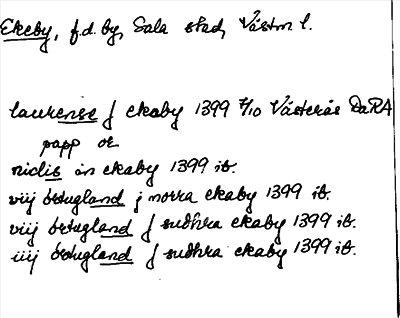 Ekeby, f.d. by, Sala stad, Västm l.
laurense j ekaby 1399 7/10 Västerås DaRA
papp or
niclis än ekaby 1399 ib.
viij örtugland j norra ekaby 1399 ib.
viij örtugland j sudhra ekaby 1399 ib.
iiij örtugland j sudhra ekaby 1399 ib.